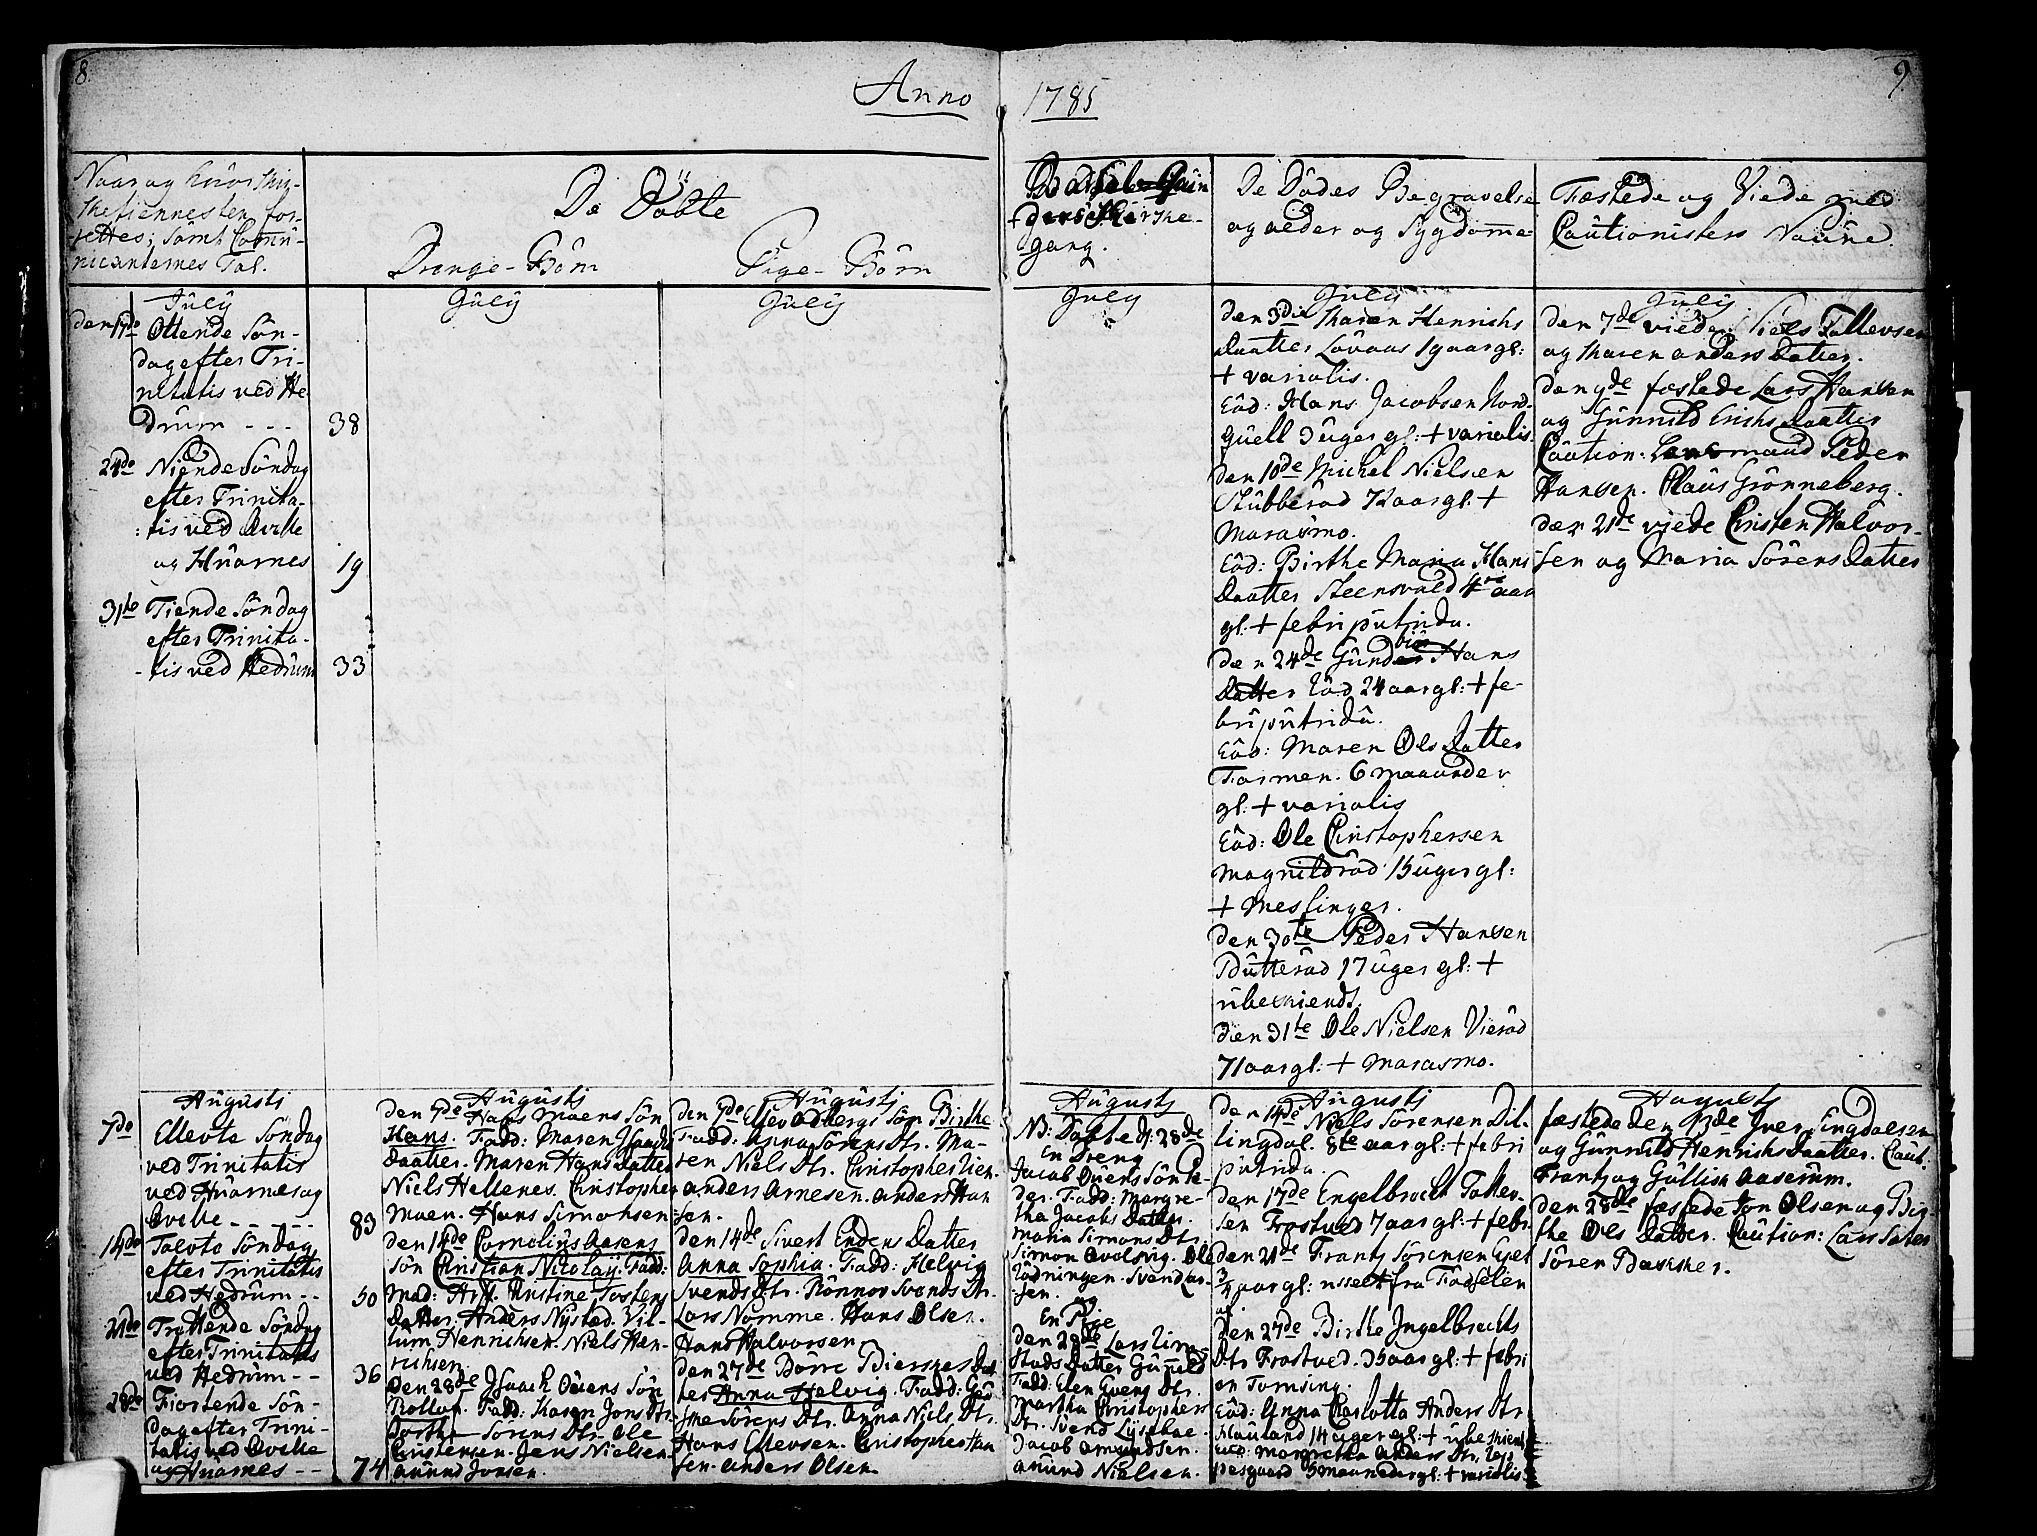 8.
Anno
1785
9
Naar og hvor Thie-
thetiennesten for-
rettes; samt Comu-
nicanternes Tal.
De Döbte
Drenge-Börn
Pige-Börn
gang.
De Dödes Begravelse
og alder og Sygdomme
Fæstede og Viede med
Cautionisters Navne.
July
den 17de Ottende Sön-
dag efter Tri-
nitatis ved He
drum - - - 38
24de Niende Söndag
efter Trinita-
tis ved Qvelle
og Hvarnes 19
31te Tiende Söndag
efter Trinita-
tis ved Hedrum 33
July
July
July
July
den 3die Karen Henrichs
Daatter Lovaas 19 aar gl:
+ variolis.
Eod: Hans Jacobsen Nord-
quell 3 uger gl: + variolis.
den 10de Michel Nielsen
Stubberöd 72 aar gl: +
Marasmo.
Eod: Birthe Maria Hans
Daatter Steensvald 4re aar
gl: + febri putrida.
den 24de Gunbiör Hans
Datter Röd 24 aar gl: + fe-
bri putrida.
Eod: Maren Ols Datter
Farmen. 6 maaneder
gl: + variolis
Eod: Ole Christophersen
Magnildröd 15 uger gl:
+ Meslinger.
den 30te Peder Hansen
Butteröd 17 uger gl: +
ubekiendt.
den 31te Ole Nielsen Vieröd
71 aar gl: + Marasmo.
July
den 7de viede Niels Tollevsen
og Karen Anders Datter.
den 9de fæstede Lars Hansen
og Gunnild Erichs Daatter
Caution: Lensmand Peder
Hansen. Claus Grönneberg.
den 21de viede Christen Halvor-
sen og Maria Sörens Datter
Augusti
7de Ellevte Söndag
ved Trinitatis
ved Hvarnes og
Qvelle - - - - 83
14de Tolvte Söndag
efter Trinitatis
ved Hedrum - - 50
21de Trettende Söndag
efter Trinitatis
ved Hedrum - - 36
28de Fiortende Sön-
dag efter Trini-
tatis ved Qvelle
og Hvarnes - - 74
Augusti
den 7de Hans Moens Sön
Hans. Fadd: Maren Isaachs
Daatter. Maren Hans Datter
Niels Hellenes. Christopher
Moen. Hans Simonsen.
den 14de Cornelius Aasens
Sön Christian Nicolay. Fadd:
Mad: Christine Tostens
Datter. Anders Nysted. Vil-
lum Henrichsen. Niels Hen-
richsen.
den 28de Isaach Oüens Sön
Rollof. Fadd: Karen Jons Dtr.
Dorthe Sörens Dtr. Ole
Christensen. Jens Nielsen
Amund Jonsen.
Augusti
den 7de Birthe
Fadd: Anna Sörens Dtr. Ma-
ren Niels Dtr. Christopher Lien.
Anders Arnesen. Anders Han
sen.
den 14de Sivert Endens Datter
Anna Sophia. Fadd: Helvig
Svends Dtr. Rönnov Svends Dtr.
Lars Nomme. Hans Olsen.
Hans Halvorsen
den 27de Börre Bierches Dat
ter Anna Helvig. Fadd:
Sörens Dtr. Anna Niels Dtr.
Hans Ellevsen. Christopher Han
sen. Anders Olsen.
Augusti
NB: Döbte d: 28de
En Dreng
Jacob Oüens Sön Pe-
der. Fadd: Margre-
tha Jacobs Datter.
Maria Simons Dtr.
Simon Ole
Rödningen. Svend Lar-
sen.
og
En Pige
den 28de Lars Lim-
stads Datter Gunnild
Fadd: Elen Evens Dtr.
Martha Christophers
Dtr. Svend Lysebae.
Jacob Amundsen.
Amund Nielsen.
Augusti
den 14de Niels Sörensen Dil-
lingdal. 8te aar gl: + febri
putrida.
den 17de Engelbrecht Tollev-
sen Trostved 7 aar gl: + febri
den 21de Frantz Sörensen
3/4 aar gl: fra Födselen
af
den 27de Birthe Ingelbrechts
Dtr Trostved. 35 aar gl: + febri
en Tvensing.
Eod: Anna Charlotta Anders Dtr
Hauland 14 uger gl: + ubekiendt
Eod: Margretha Anders Dtr.
5 maaneder gl: + variolis
Augusti
fæstede den 13de Iver Lingdalsen
og Gunnild Henrichs Daatter. Caut:
Frantz og Gullich Aaserum.
den 28de fæstede Jon Olsen og Bir-
the Ols Datter. Caution: Lars
Sören Becker.